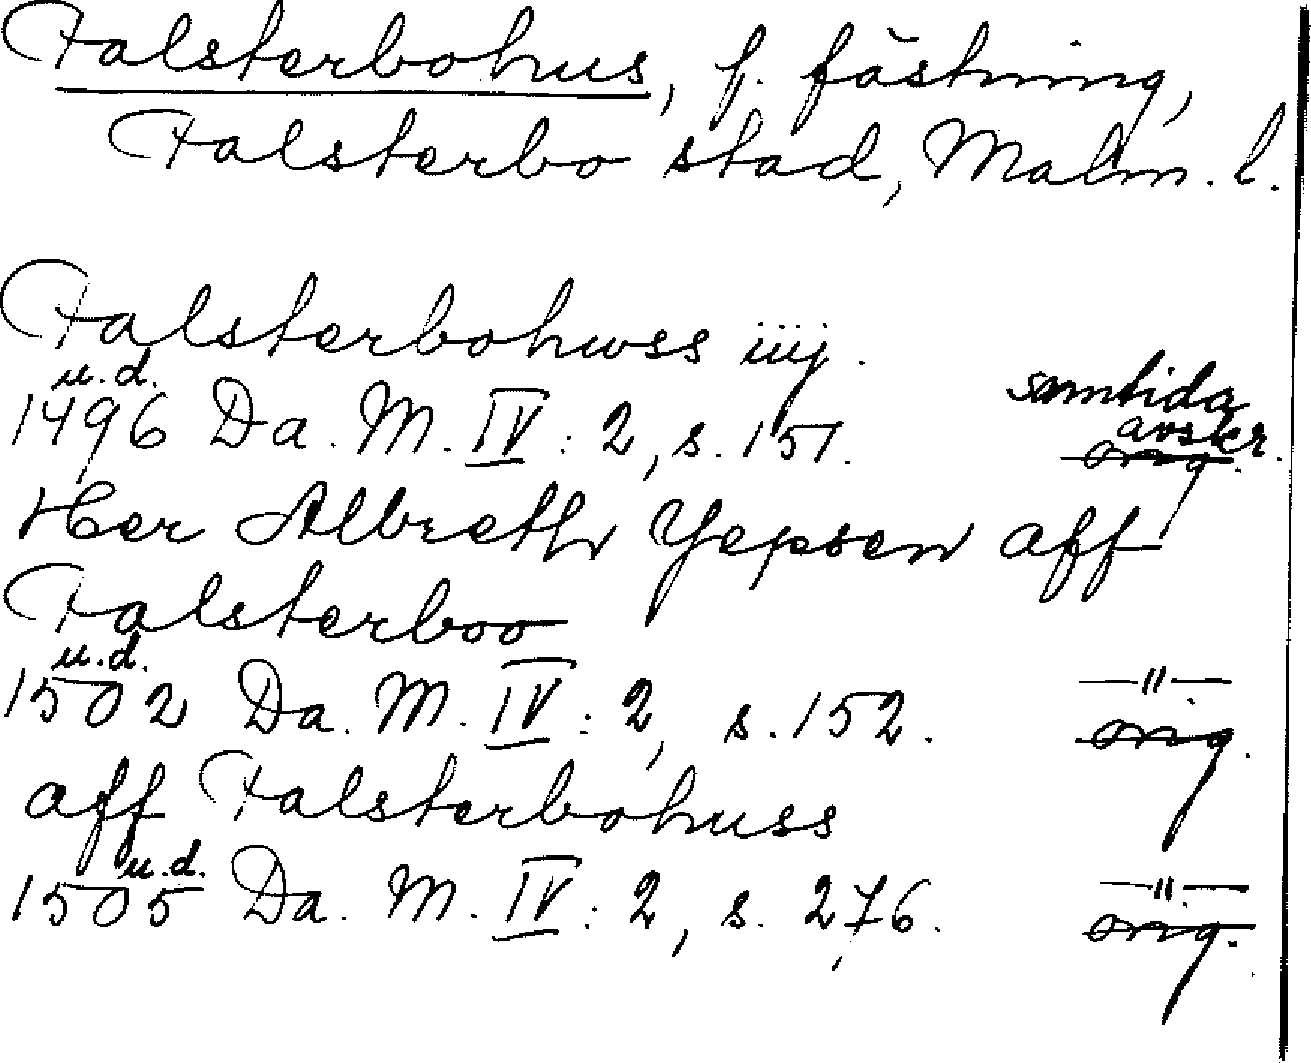 Falsterbohus, f. fästning,
Falsterbo stad, Malm. l.
Falsterbohwss iiij.
u.d.
1496 Da. M. IV : 2, s. 151. samtida avskr. orig.
Her Albreth Yepsen aff
Falsterboo
u.d.
1502 Da. M. IV : 2, s. 152. —"— orig.
aff Falsterbohuss
u.d.
1505 Da. M. IV : 2, s. 276. —"— orig.